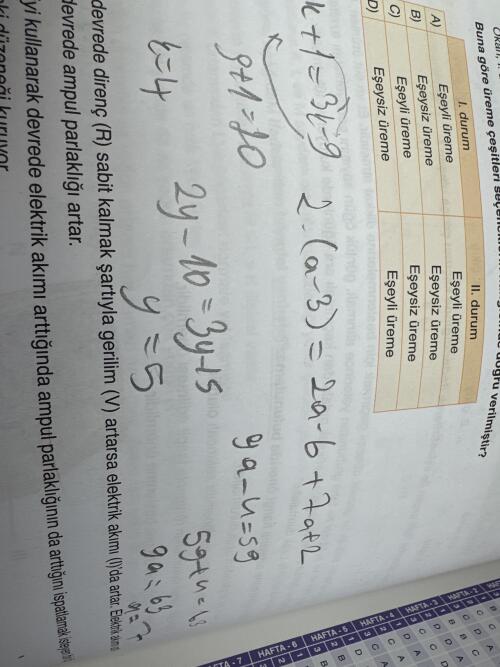 Buna göre üreme çeşitleri doğru verilmiştir?
I. durum II. durum
A) Eşeyli üreme Eşeyli üreme
B) Eşeysiz üreme Eşeysiz üreme
C) Eşeyli üreme Eşeysiz üreme
D) Eşeysiz üreme Eşeyli üreme
+1=3k-9 2.(a-3)=2a-6+7a+2
9+1=20 9a-4=59
2y-10=3y+5 59+4=63
k=4 y=5 9a=63
a=7
devrede direnç (R) sabit kalmak şartıyla gerilim (V) artarsa elektrik akımı (I)'da artar. Elektrik
devrede ampul parlaklığı artar.
yi kullanarak devrede elektrik akımı arttığında ampul parlaklığının da arttığını ispatlamak
düzeneği kuruyor
HAFTA - 7
HAFTA - 6
HAFTA - 5
HAFTA - 4
HAFTA - 3